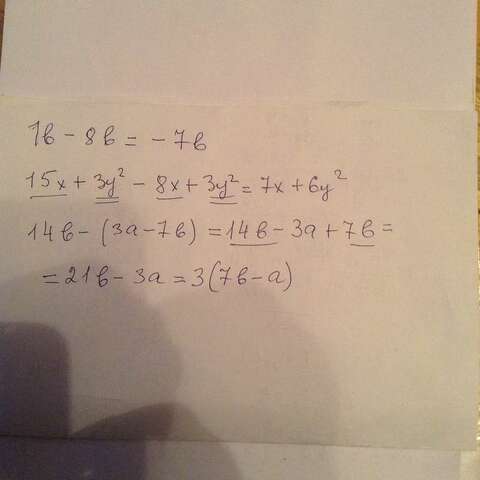 1b - 8b = - 7b
15x + 3y² - 8x + 3y² = 7x + 6y²
14b - (3a - 7b) = 14b - 3a + 7b =
= 21b - 3a = 3(7b - a)